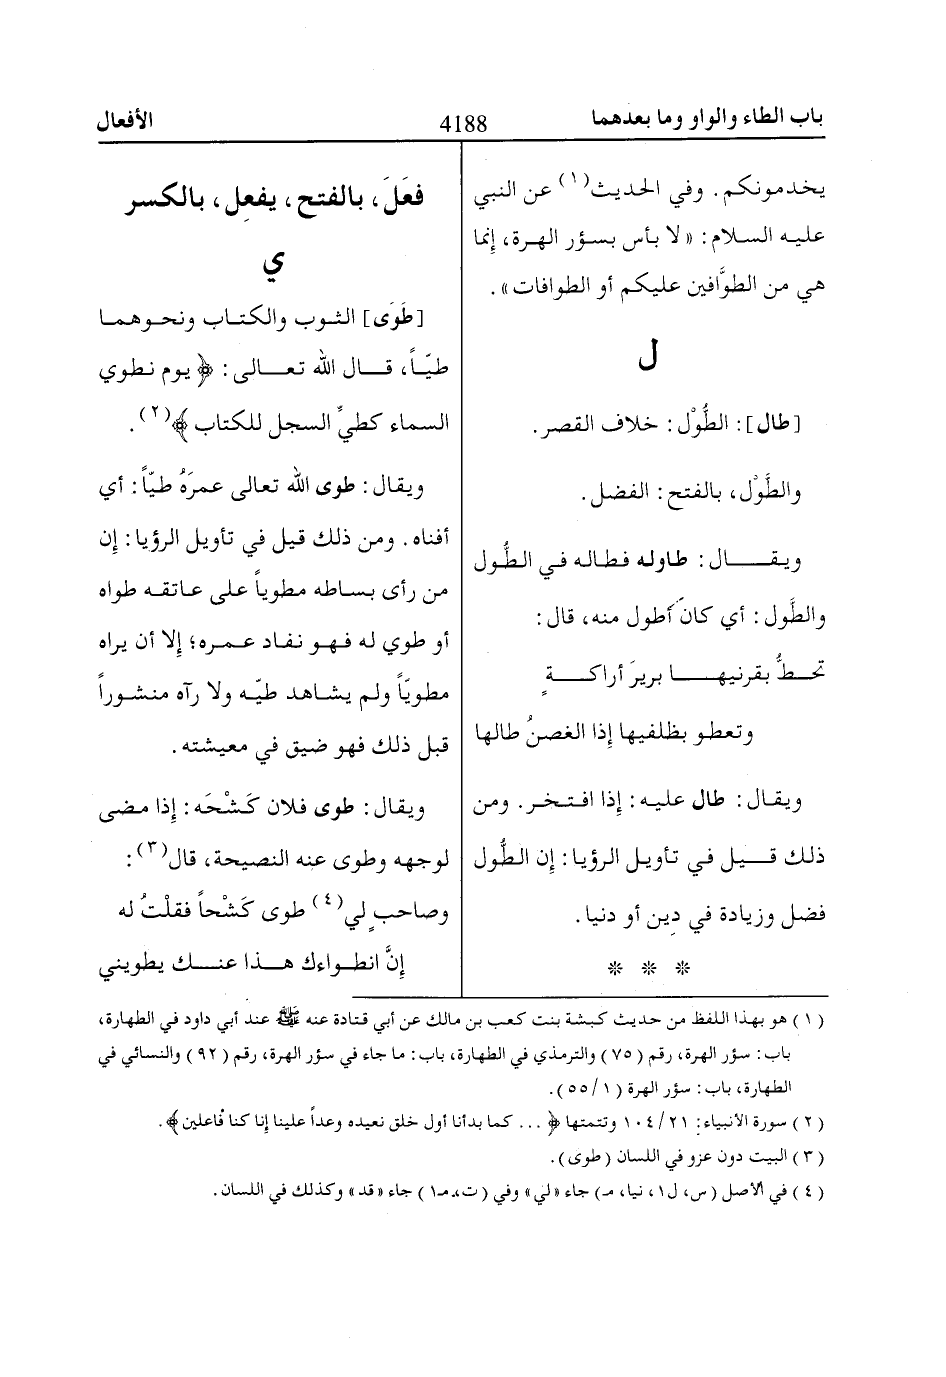 باب الطاء والواو وما بعدهما
4188
الأفعال
يخدمونكم. وفي الحديث(١) عن النبي
عليه السلام: «لا بأس بسؤر الهرة، إنما
هي من الطوَّافين عليكم أو الطوافات».
ل
[طال]: الطُّوْل: خلاف القصر.
والطَّوْل، بالفتح: الفضل.
ويقال: طاوله فطاله في الطُّول
والطَّول: أي كانَ أطول منه، قال:
تحطُّ بقرنيها بريرَ أراكةٍ
وتعطو بظلفيها إذا الغصنُ طالها
ويقال: طال عليه: إذا افتخر. ومن
ذلك قيل في تأويل الرؤيا: إن الطُّول
فضل وزيادة في دين أو دنيا.
* * *
فعَلَ، بالفتح، يفعِل، بالكسر
ي
[طَوَى] الثوب والكتاب ونحوهما
طيّاً، قال الله تعالى: ﴿يوم نطوي
السماء كطيِّ السجل للكتاب﴾(٢).
ويقال: طوى الله تعالى عمرَهُ طيّاً: أي
أفناه. ومن ذلك قيل في تأويل الرؤيا: إن
من رأى بساطه مطوياً على عاتقه طواه
أو طوي له فهو نفاد عمره؛ إلا أن يراه
مطويّاً ولم يشاهد طيّه ولا رآه منشوراً
قبل ذلك فهو ضيق في معيشته.
ويقال: طوى فلان كَشْحَه: إذا مضى
لوجهه وطوى عنه النصيحة، قال(٣):
وصاحبٍ لي(٤) طوى كَشْحاً فقلْتُ له
إنَّ انطواءك هذا عنك يطويني
(١) هو بهذا اللفظ من حديث كبشة بنت كعب بن مالك عن أبي قتادة عنه ﷺ عند أبي داود في الطهارة،
باب: سؤر الهرة، رقم (٧٥) والترمذي في الطهارة، باب: ما جاء في سؤر الهرة، رقم (٩٢) والنسائي في
الطهارة، باب: سؤر الهرة (١/٥٥).
(٢) سورة الأنبياء: ٢١/١٠٤ وتتمتها ﴿... كما بدأنا أول خلق نعيده وعداً علينا إنا كنا فاعلين﴾.
(٣) البيت دون عزو في اللسان (طوى).
(٤) في الأصل (س، ل١، نيا، مـ) جاء «لي» وفي (ت، مـ١) جاء «قد» وكذلك في اللسان.